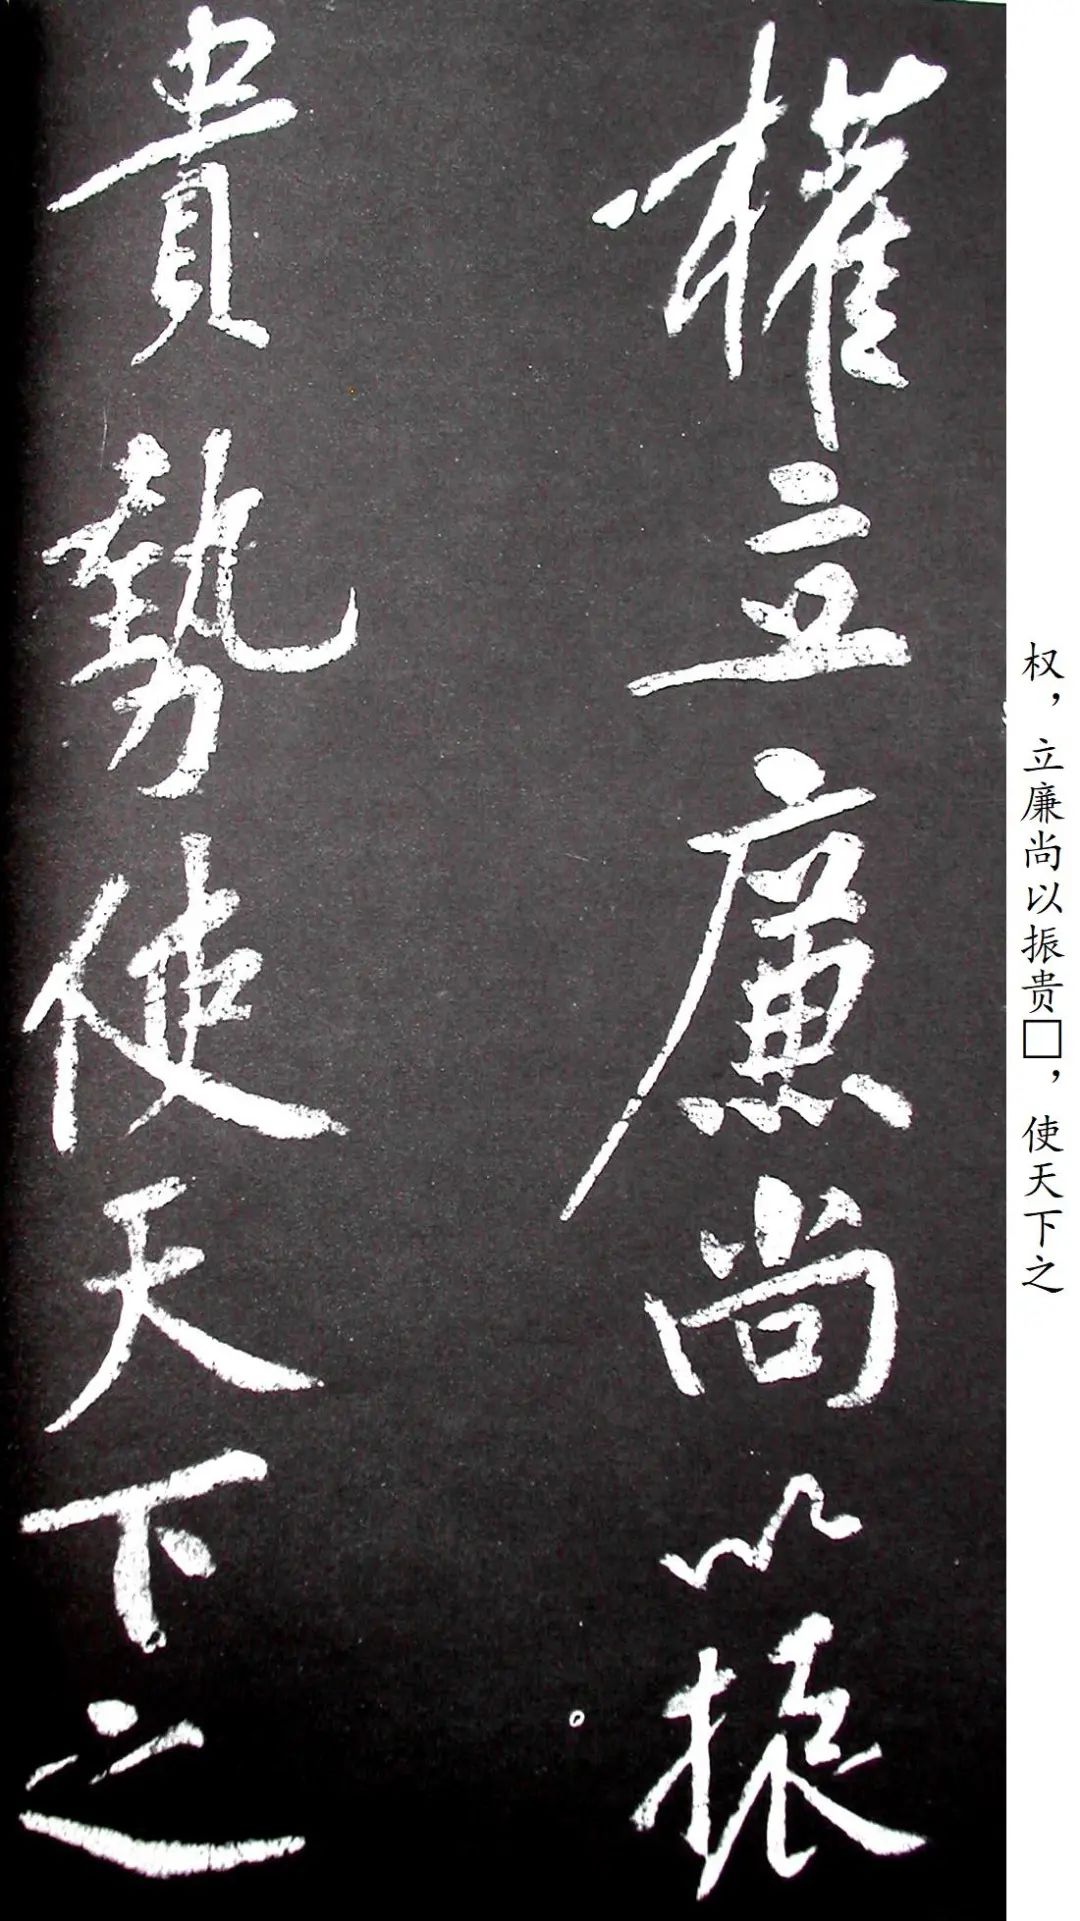 權立廉尚以振
貴勢使天下之
权，立廉尚以振贵□，使天下之